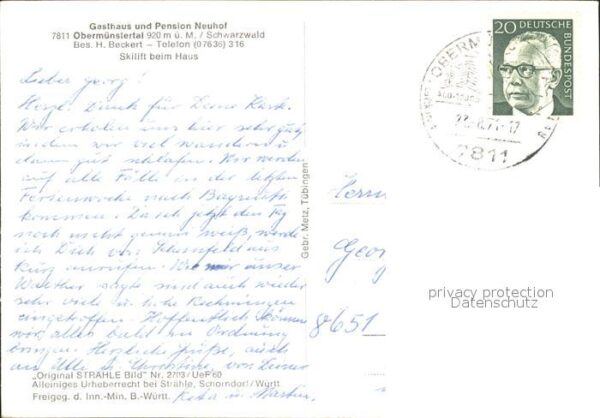 Gasthaus und Pension Neuhof
7811 Obermünstertal 920 m ü. M. / Schwarzwald
Bes. H. Beckert – Telefon (07636) 316
Skilift beim Haus
20 DEUTSCHE
BUNDESPOST
7811
Lieber Georg!
Herzl. Dank für Deine Karte.
Wir erholen uns hier sehr gut,
indem wir viel wandern u.
dann gut schlafen. Wir werden
auf alle Fälle in der letzten
Ferienwoche nach Bayreuth
kommen. Da ich jetzt den Tag
noch nicht genau weiß, werde
ich Dich von aus
kurz anrufen. Wie mir unser
Walther sagte sind auch wieder
sehr viele u. hohe Rechnungen
eingetroffen. Hoffentlich können
wir alles bald in Ordnung
bringen. Herzliche Grüße, auch
an Ulla u. Christine, von Deiner
u. Martin.
Gebr. Metz, Tübingen
Herrn
Geor
8651
privacy protection
Datenschutz
„Original STRÄHLE Bild" Nr. 2703 / UeF 60
Alleiniges Urheberrecht bei Strähle, Schorndorf/Württ
Freigog. d. Inn.-Min. B.-Württ.